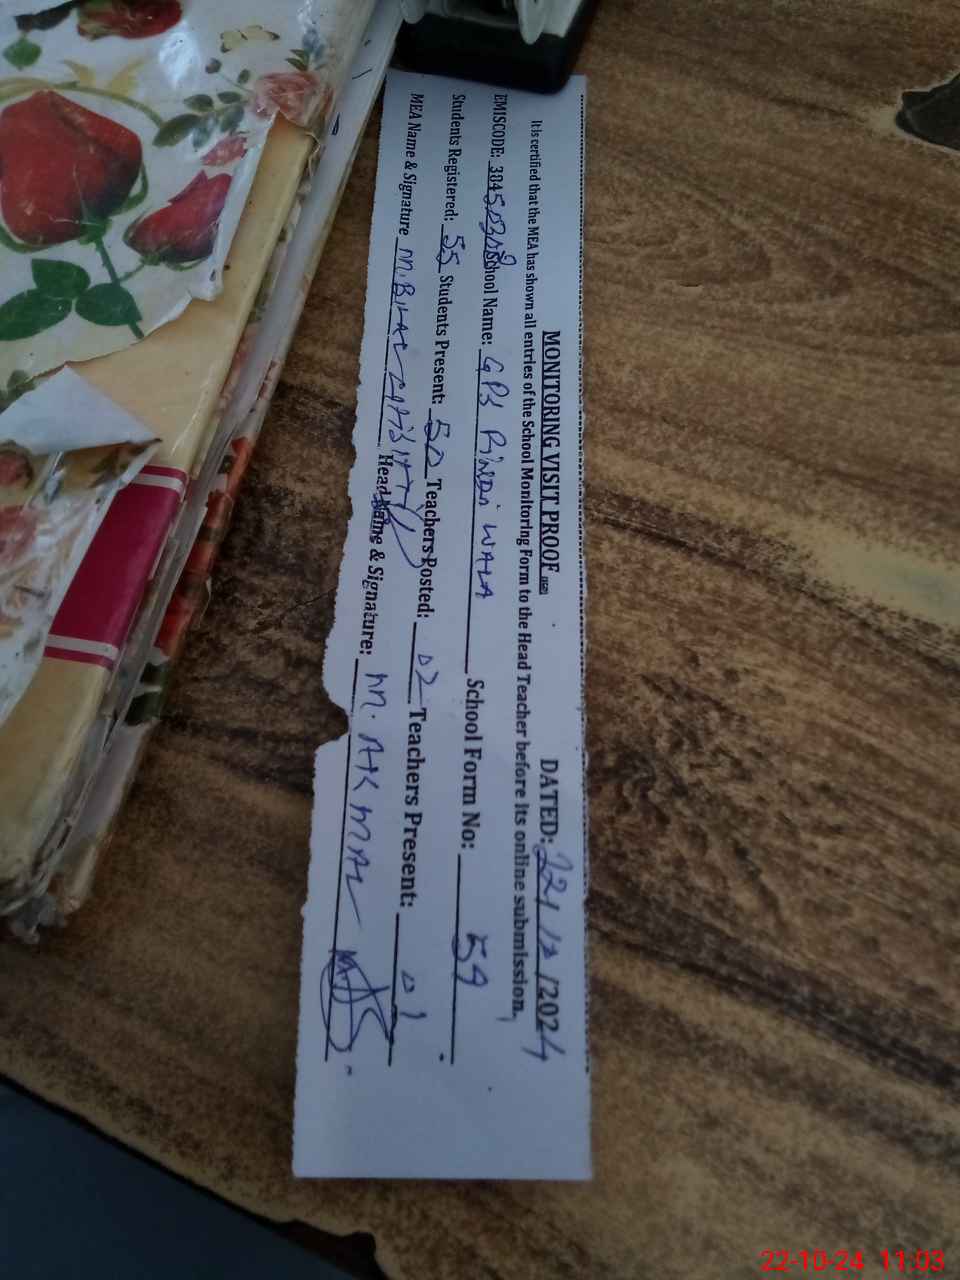 MONITORING VISIT PROOF DATED: 22/10/2024
It is certified that the MEA has shown all entries of the School Monitoring Form to the Head Teacher before its online submission.
EMISCODE: School Name: GPS PiNDi WALA School Form No: 59
Students Registered: 55 Students Present: 50 Teachers Posted: 02 Teachers Present: 01
MEA Name & Signature M. BILAL Head Name & Signature: M. AKMAL
22-10-24 11:03